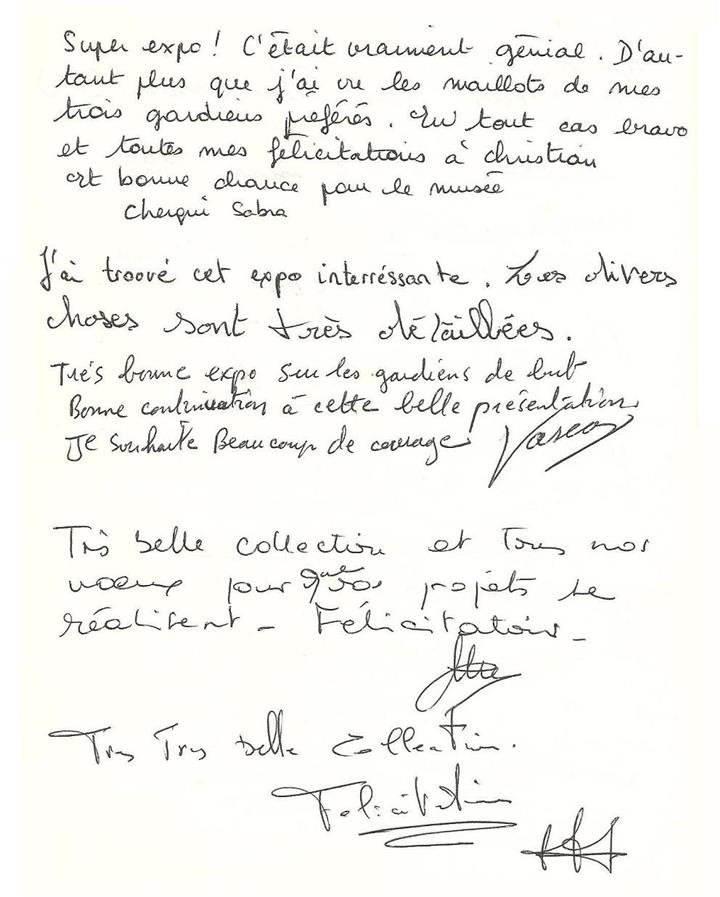 Super expo ! C'était vraiment génial. D'au-
tant plus que j'ai vu les maillots de mes
trois gardiens préférés. En tout cas bravo
et toutes mes félicitations à christian
et bonne chance pour le musée
Cherqui Sabra
J'ai troové cet expo interréssante. Les divers
choses sont très détaillées.
Très bonne expo sur les gardiens de but
Bonne continuation à cette belle présentation
Je souhaite Beaucoup de courage
Très belle collection et tous nos
voeux pour que vos projets se
réalisent - Félicitatoirs -
Tres Tres belle Collection.
Felicitation